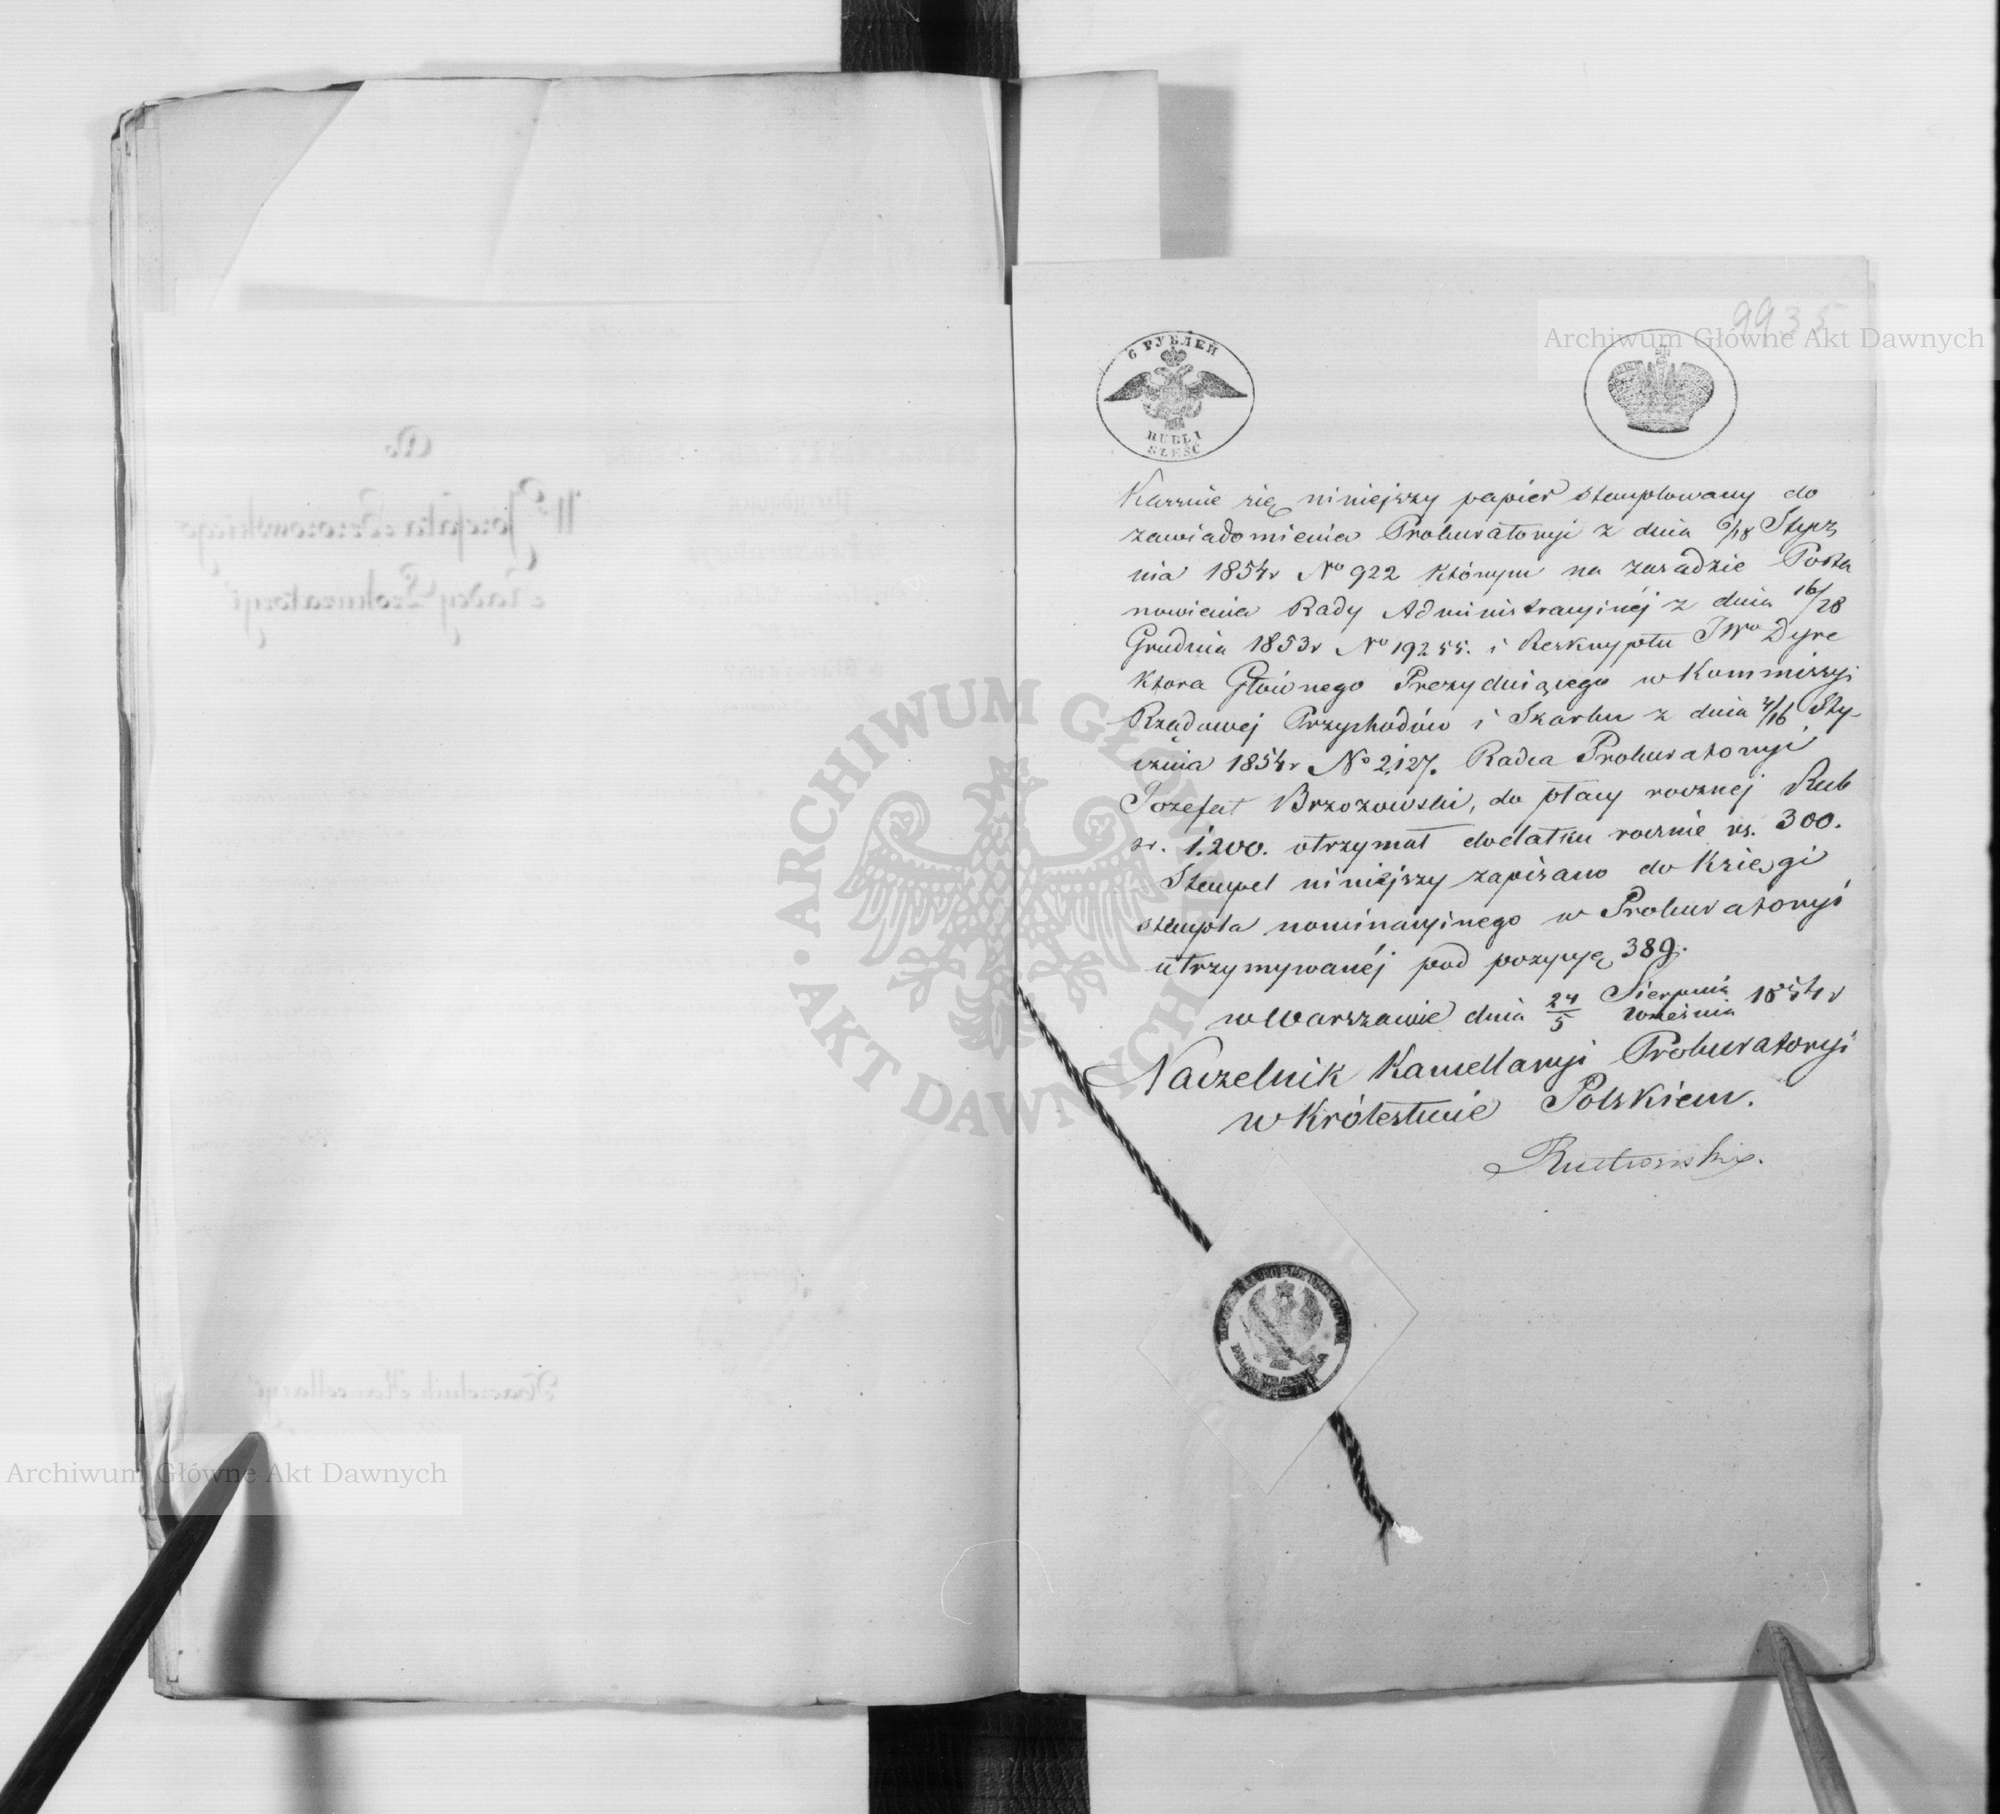 9935
Archiwum Główne Akt Dawnych
6 РУБЛЕЙ
RUBLI
SZEŚĆ
Kassuie się niniejszy papier stemplowany do
zawiadomienia Prokuratoryi z dnia 6/18 Stycz
nia 1854r No 922 którym na zasadzie Posta
nowienia Rady Administracyinéj z dnia 16/28
Grudnia 1853r No 19255. i Reskryptu JWo Dyre
ktora Głównego Prezyduiącego w Kommissyi
Rządowej Przychodów i Skarbu z dnia 4/16 Sty-
cznia 1854r No 2,127. Radca Prokuratoryi
Jozefat Brzozowski, do płacy rocznej Rub
sr. 1.200. otrzymał dodatku rocznie rs. 300.
Stempel niniejszy zapisano do Księgi
stempla nominacyinego w Prokuratoryi
utrzymywanéj pod pozycyą 389.
w Warszawie dnia 24/5 Sierpnia/Września 1854r
Naczelnik Kancellaryi Prokuratoryi
w Królestwie Polskiem.
ARCHIWUM GŁÓWNE AKT DAWNYCH
Archiwum Główne Akt Dawnych
Do
Wo Jozefata Brzozowskiego
Radcy Prokuratoryi
Naczelnik Kancellaryi